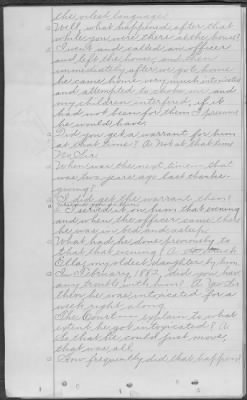 the vilest language.
Q Well, what happened after that
while you were there at the house?
A I went and called an officer
and left the house, and then
immediately after we got home
he came home very much intoxicated
and attempted to choke me and
my children interfered, if it
had not been for them I presume
he would have
Q Did you get a warrant for him
at that time? A Not at that time
No Sir
Q When was the next time - that
was two years ago last thanks-
giving?
A I did get the warrant then?
I served it on him that evening
and when the officer came there
he was in bed and asleep
Q What had he done previously to
that that evening? A
Ella, my oldest daughter by him
Q In February, 1882, did you have
any trouble with him? A Yes Sir
then he was intoxicated for a
week right along.
Q The Court explain to what
extent he got intoxicated? A
So that he could just move,
that was all
Q How frequently did that happen